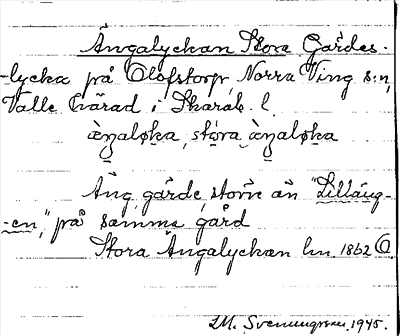 Ängalyckan Stora Gärdes-
-lycka på Olofstorp, Norra Ving s:n,
Valle härad i Skarab. l.
àŋaløka, stóra àŋaløka
Äng, gärde, större än "Lilläng-
-en," på samma gård
Stora Ängalyckan lm. 1862
I.M. Svenungsson, 1945.